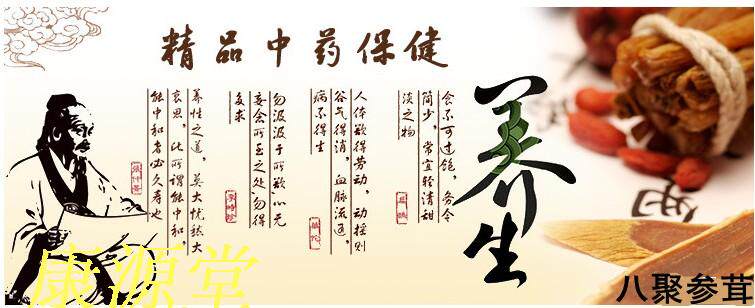 精品中药保健
养生
食不可过饱，务令
简少，常宜轻清甜
淡之物
人体欲得劳动，动摇则
谷气得消，血脉流通，
病不得生
华佗
勿汲汲于所欲心无
妄念所至之处勿得
多求
李时珍
养性之道，莫大忧愁大
哀思，此所谓能中和，
能中和者必久寿也
张仲景
康源堂
八聚参茸